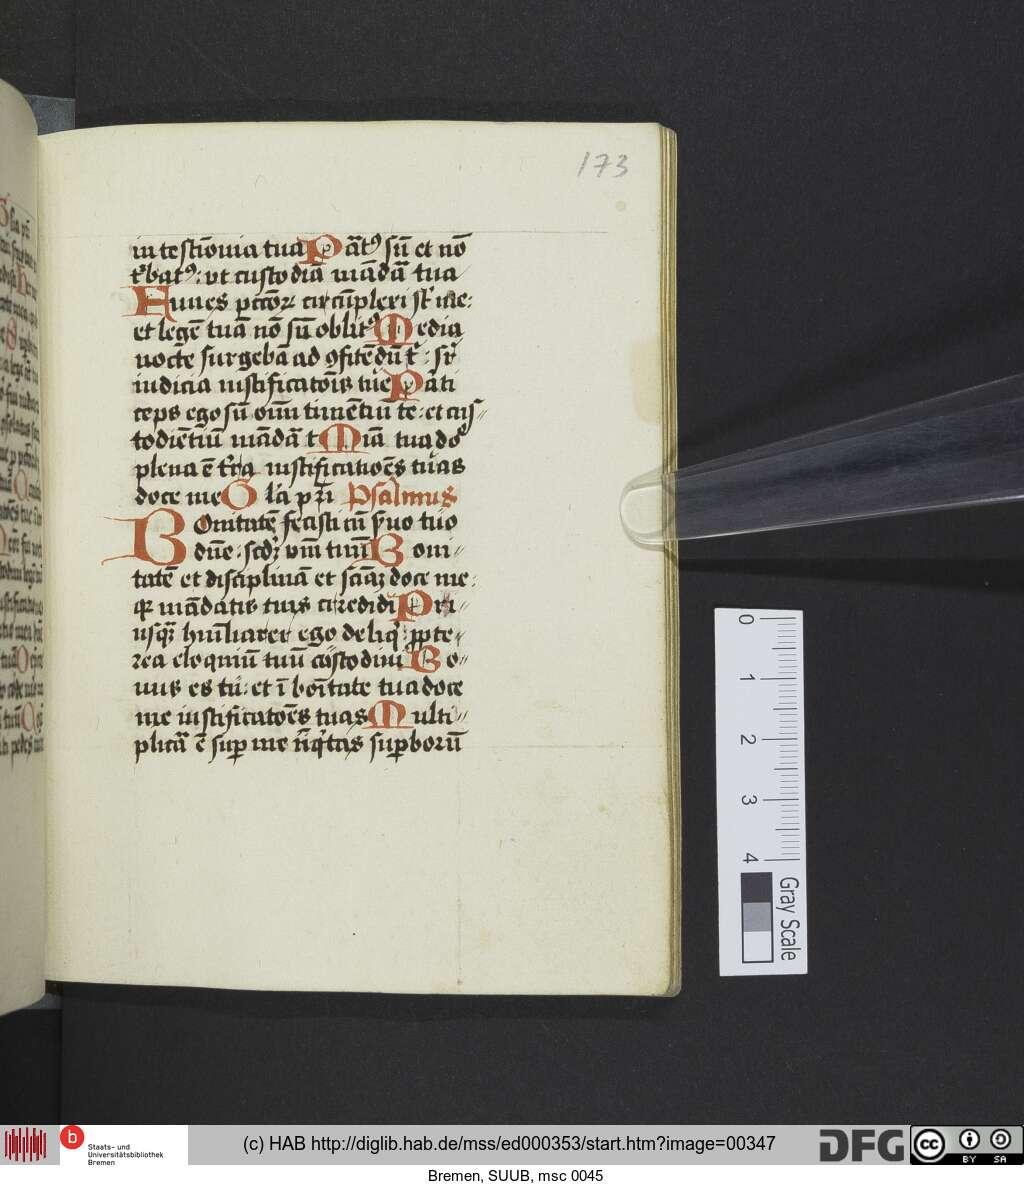 173
in testiōnia tua Pāt⁹ sū et nō
t᷑bat⁹: ut custodiā mādā tua
Funes pctōꝝ circūplexi st᷑ me:
et legē tuā nō sū oblit⁹ Media
nocte surgebā ad ꝯfitēdū t᷑: sr̄
iudicia iustificatōis tue Parti
ceps ego sū oīm timētiū te: et cus
todiētiū mādā t Mīa tua dō
plena ē t᷑ra iustificatiōes tuas
doce me Glā pr̄i Psalmus
Bonitatē fecisti cū ẜuo tuo
dūe: scdꝫ ūm tuū Boni
tatē et disciplinā et sciāꝫ doce me:
qꝛ mādatis tuis credidi Pri
usqꝫ humiliarer ego deliqͥ: ꝓpte
rea eloquiū tuū custodiui Bo
nus es tu: et ī bōitate tua doce
me iustificatōes tuas Multi
plicā ē suꝑ me īiqͥtas suꝑborū
0
1
2
3
4
Gray Scale
b
Staats- und
Universitätsbibliothek
Bremen
(c) HAB http://diglib.hab.de/mss/ed000353/start.htm?image=00347
DFG
cc
BY SA
Bremen, SUUB, msc 0045